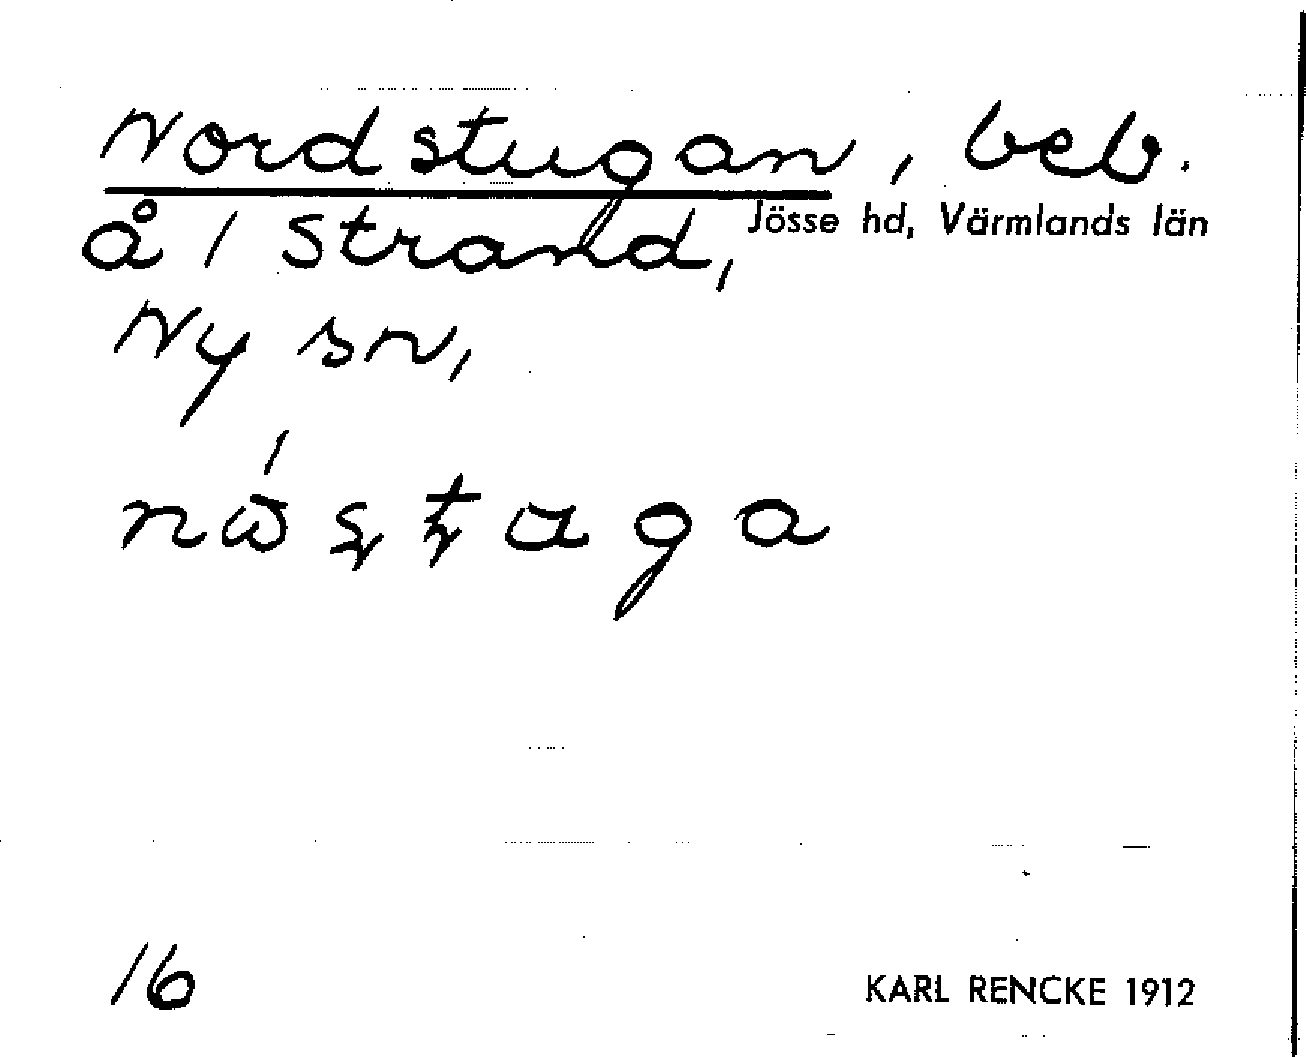 Nordstugan, beb.
å / Strand, Jösse hd, Värmlands län
Ny sn,
16
KARL RENCKE 1912